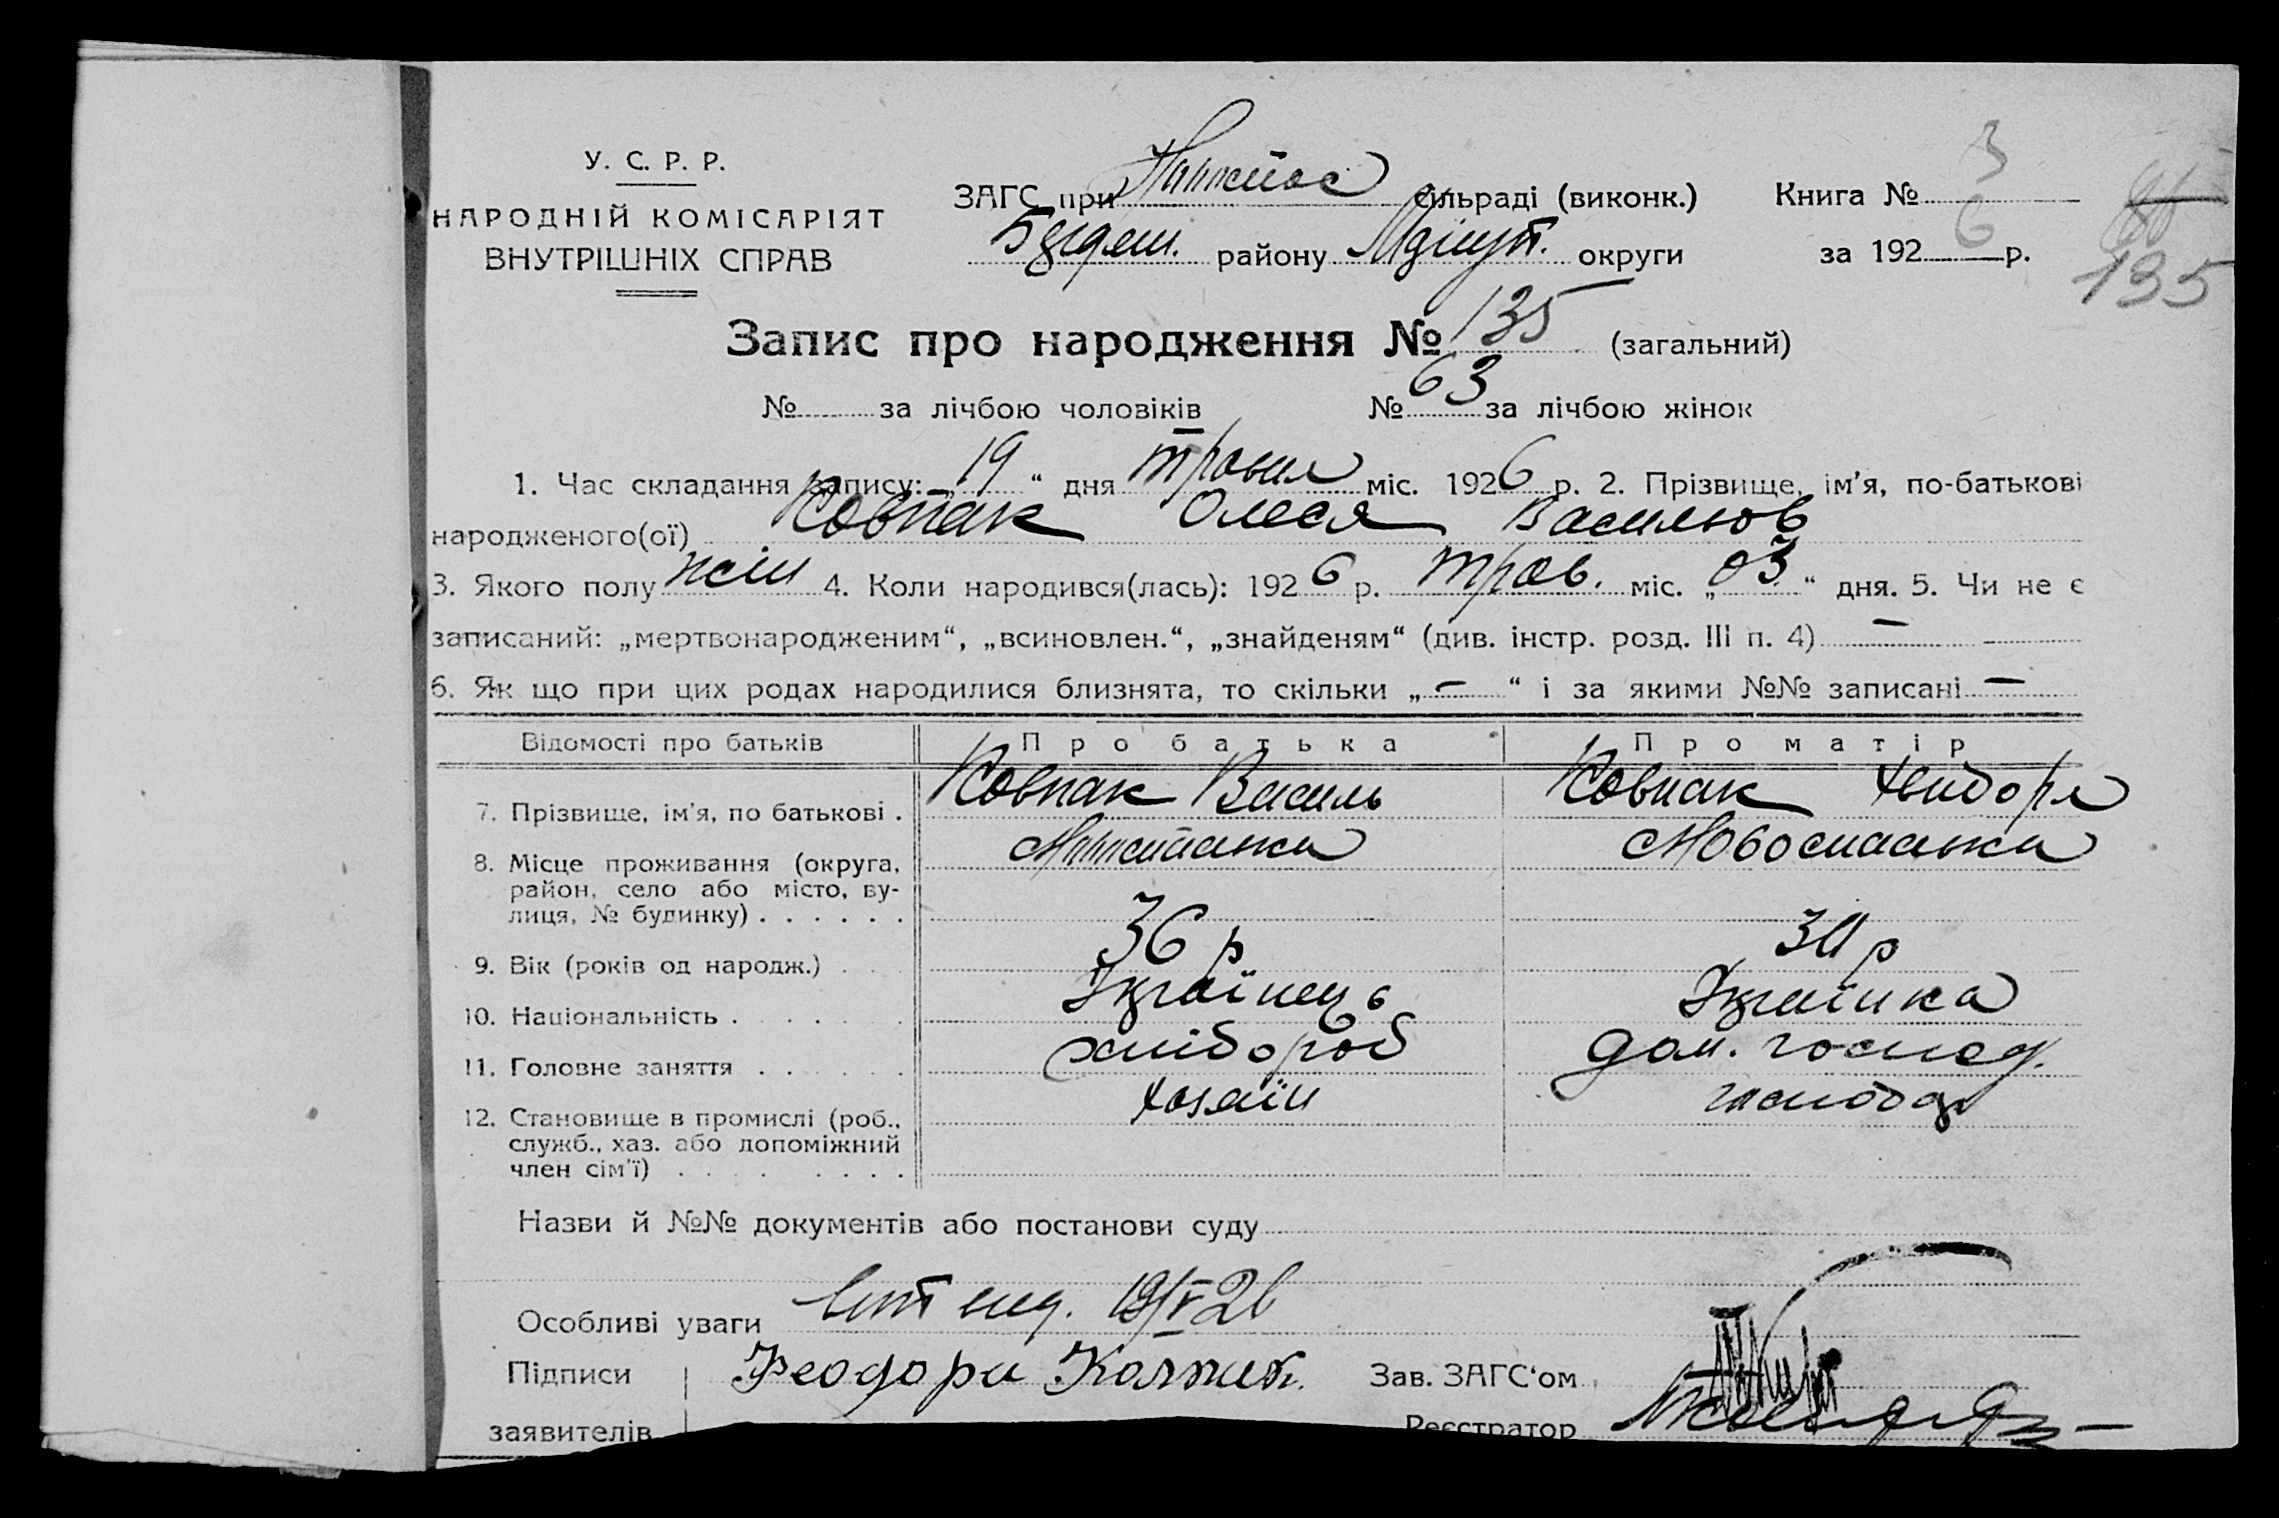 У. С. Р. Р.
НАРОДНІЙ КОМІСАРІЯТ
ВНУТРІШНІХ СПРАВ
ЗАГС при сільраді (виконк.)
району округи
Книга № 3
за 1926 р.
135
Запис про народження № 135 (загальний)
№ за лічбою чоловіків № 63 за лічбою жінок
1. Час складання запису: „19“ дня травня міс. 1926 р. 2. Прізвище, ім'я, по-батькові
народженого(ої) Ковпак Олеся Васильов
3. Якого полу жін 4. Коли народився(лась): 1926 р. трав. міс. „03“ дня. 5. Чи не є
записаний: „мертвонародженим“, „всиновлен.“, „знайденям“ (див. інстр. розд. III п. 4) —
6. Як що при цих родах народилися близнята, то скільки „—“ і за якими №№ записані —
Відомості про батьків Про батька Про матір
7. Прізвище, ім'я, по батькові . Ковпак Василь Ковпак
8. Місце проживання (округа,
район, село або місто, ву-
лиця, № будинку) . . . . . .
9. Вік (років од народж.) . . . 36 р р
10. Національність . . . . . . Українець Українка
11. Головне заняття . . . . . . хлібороб дом. господ.
12. Становище в промислі (роб., хазяїн господ
служб., хаз. або допоміжний
член сім'ї) . . . . . . . .
Назви й №№ документів або постанови суду
Особливі уваги 19/V 26
Підписи Феодора Зав. ЗАГС'ом
заявителів Реєстратор